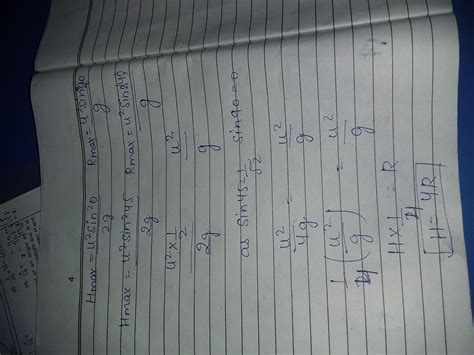 4
Hmax = u²sin²θ/2g Rmax = u²sin90/g
Hmax = u²sin²45/2g Rmax = u²sin245/g
u² × 1/2 / 2g u²/g
as sin45 = 1/√2 sin90 = 0
u²/4g = u²/g
1/4 (u²/g) = u²/g
H × 1/4 = R
H = 4R